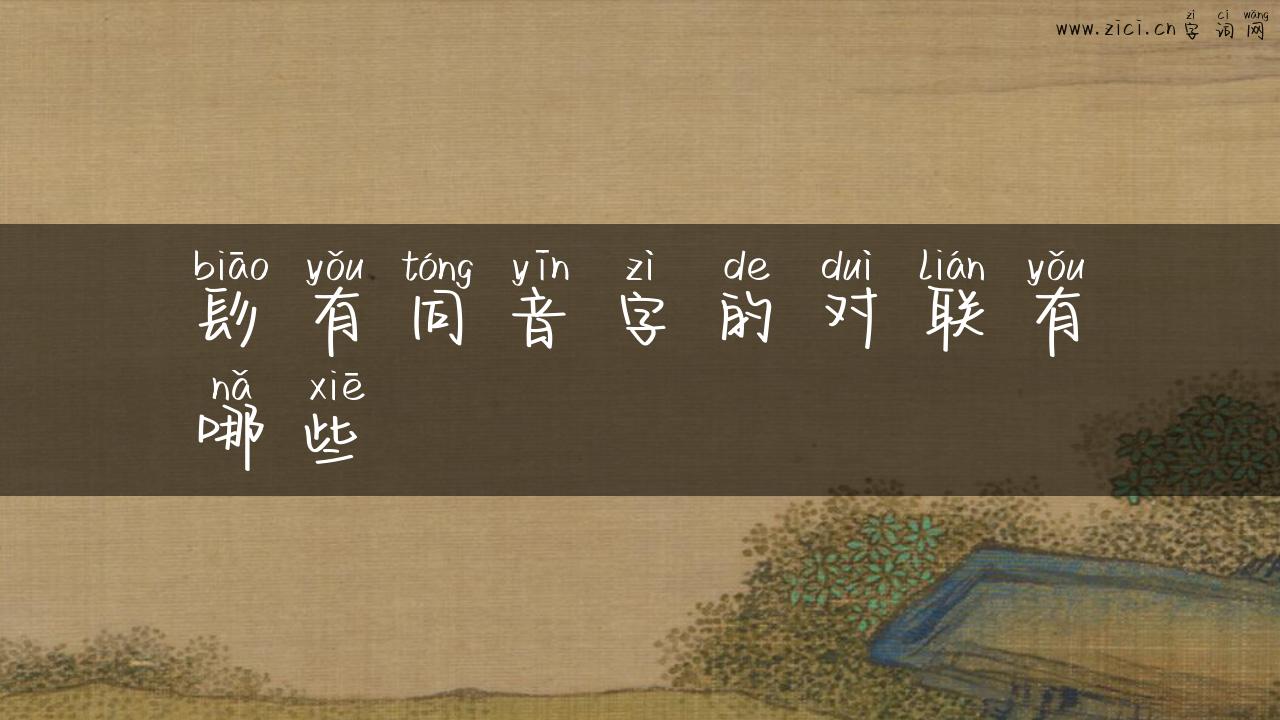 www.zici.cn zì cí wǎng 字词网
biāo yǒu tóng yīn zì de duì lián yǒu
髟有同音字的对联有
nǎ xiē
哪些